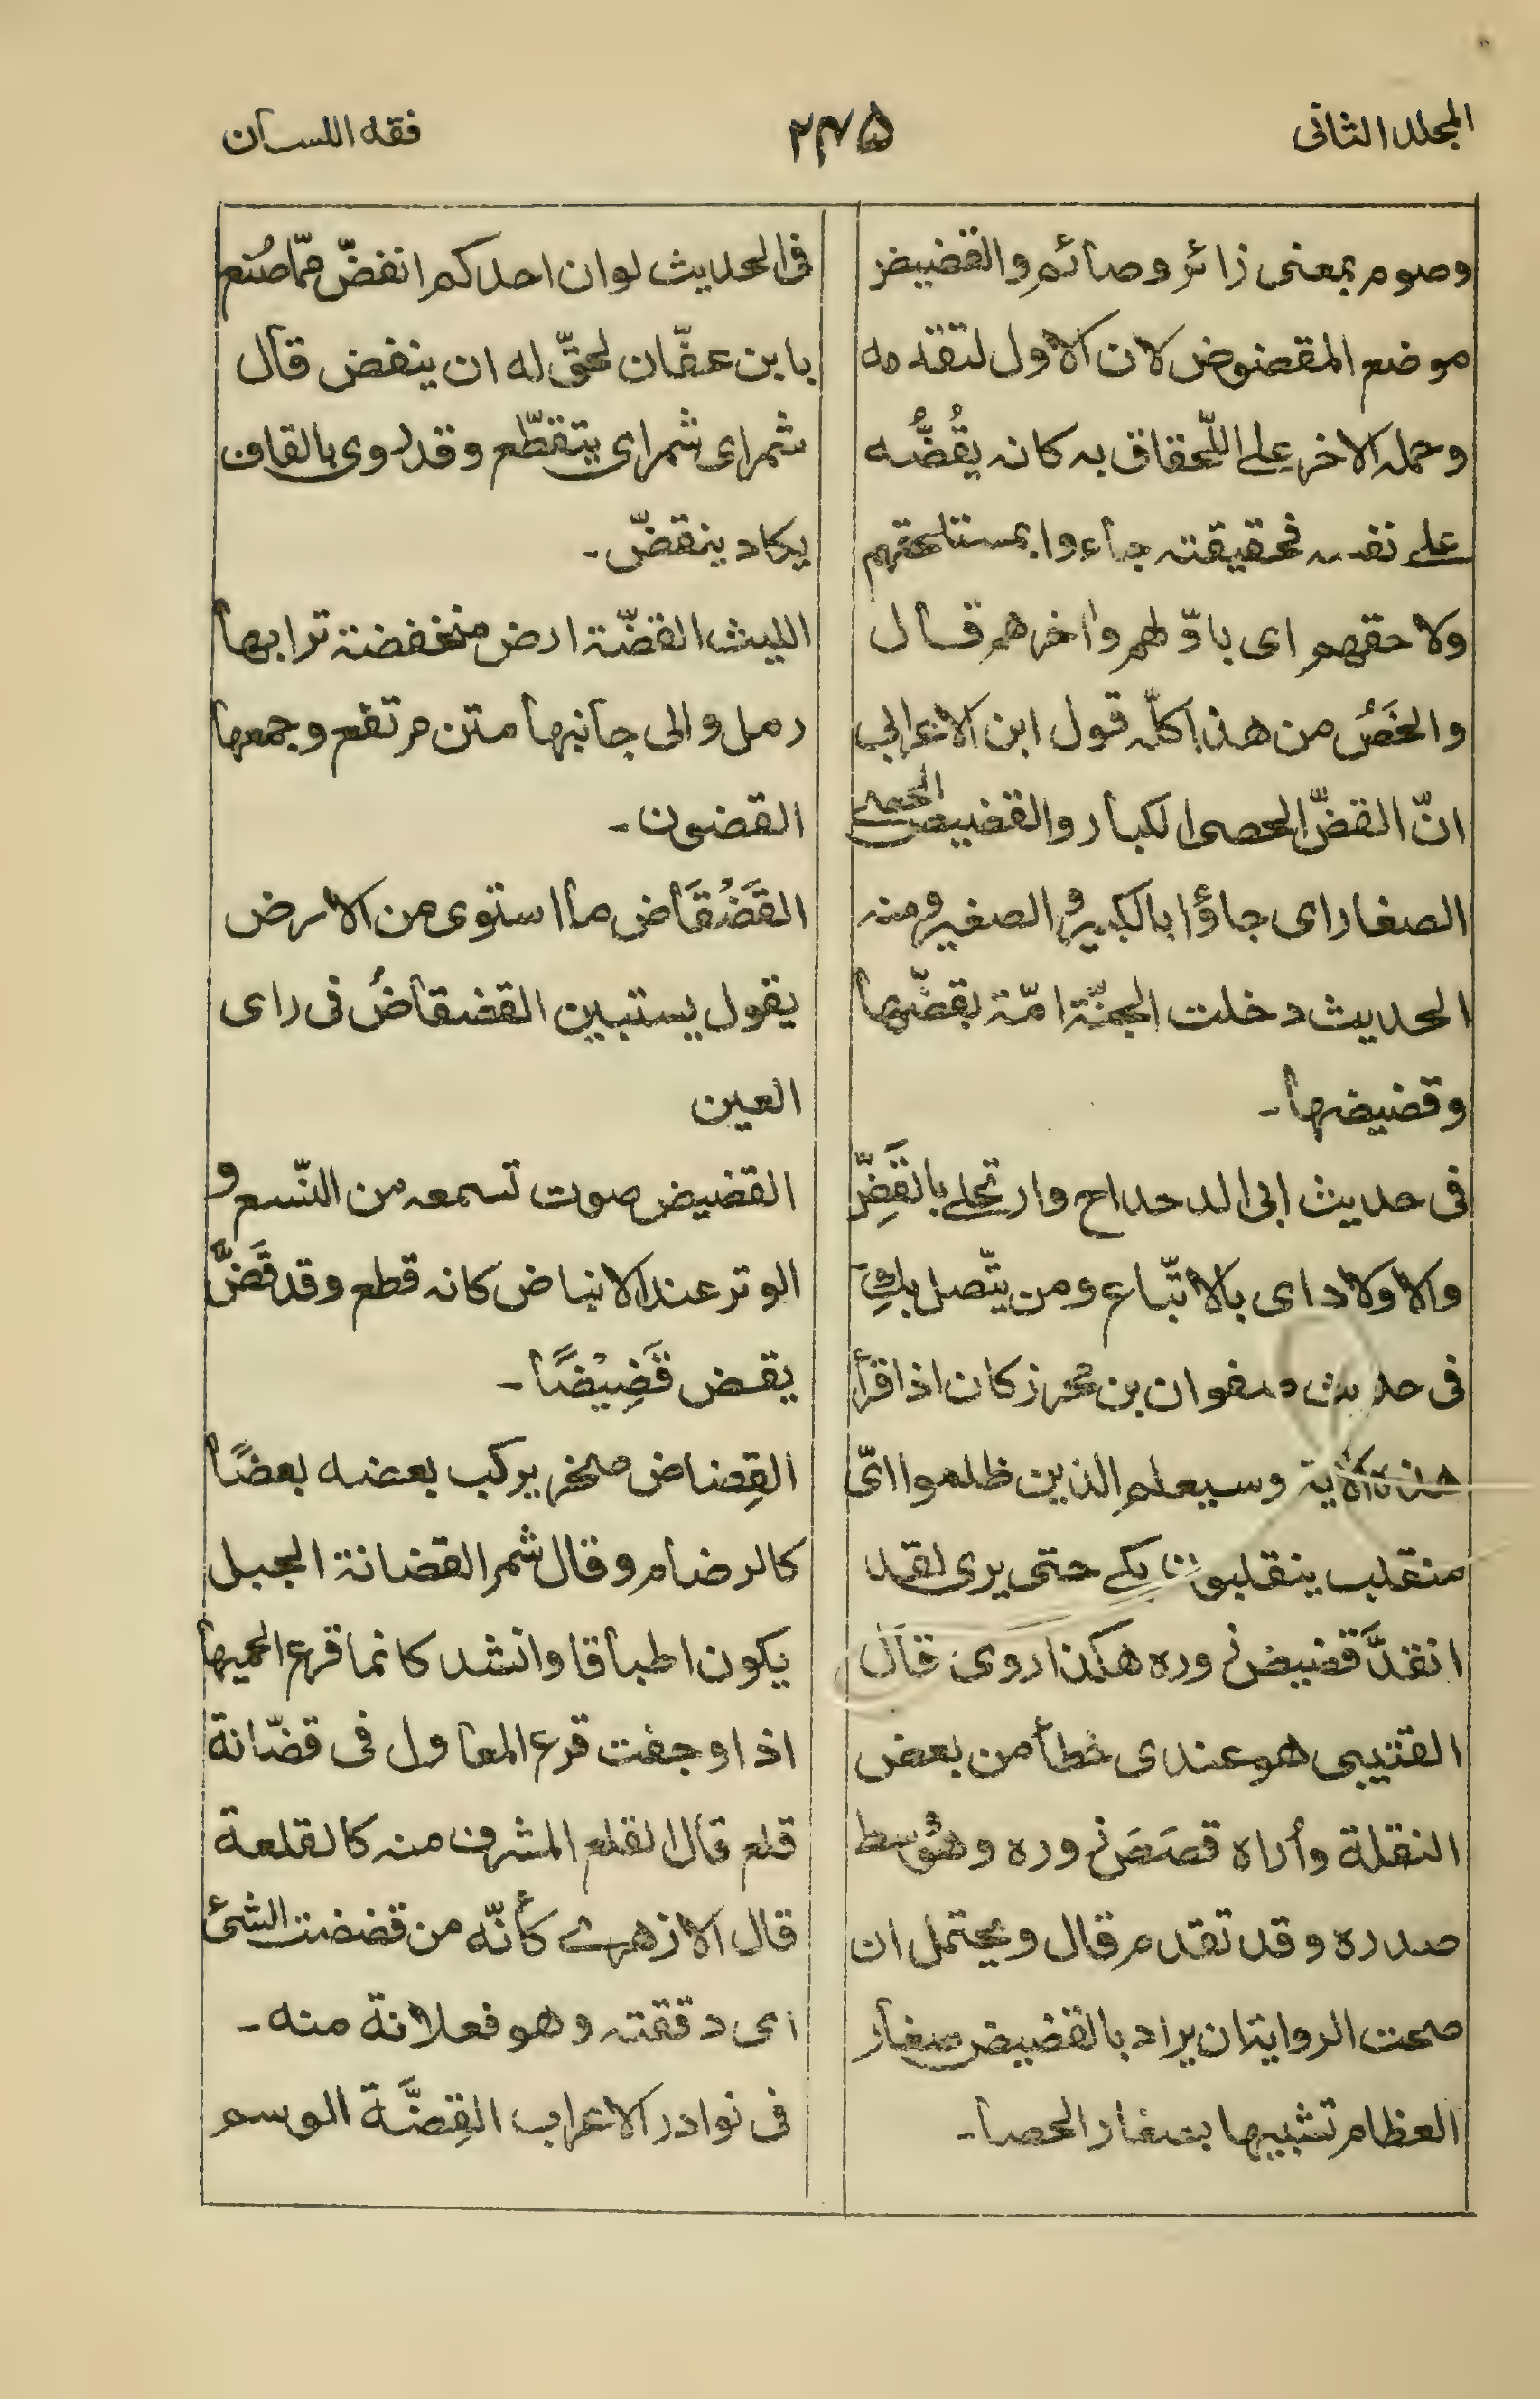 المجلد الثانی
۲۴۵
فقه اللسان
وصوم بمعنی زائر وصائم والقضیض
موضع المقضوض لان الاول لتقدمه
وحمله الاخر علی اللّحقاق به کانه یقُضُّه
علی نفسه فحقیقته جاءوا بمستلحقهم
ولاحقهم ای باوّلهم وأخرهم قال
والخَصُ من هذا کلّه قول ابن الاعرابی
انّ القضّ الحصی الکبار والقضیض الحصی
الصغار ای جاؤا بالکبیر والصغیر ومنه
الحدیث دخلت الجنّة امّة بقضّها
وقضیضها۔
فی حدیث ابی الدحداح وارتحلی بالقَضِّ
والاولاد ای بالاتّباع ومن یتّصل بكِ
فی حدیث صفوان بن محرز کان اذا قرأ
هذه الآیة وسیعلم الذین ظلموا ایّ
منقلب ینقلبون بکی حتی یری لقد
انقدَّ قضیض زوره هکذا روی قال
القتیبی هو عندی خطأ من بعض
النقلة وأراه قصَصَ زوره وهو وسط
صدره وقد تقدم قال ویحتمل ان
صحت الروایة ان یراد بالقضیض صغار
العظام تشبیها بصغار الحصا۔
فی الحدیث لو ان احدکم انفضّ ممّا صُنع
بابن عفّان لحقّ له ان ینفض قال
شمر ای شمر ای یتقطّع وقد روی بالقاف
یکاد ینقضّ۔
اللیث القضّة ارض منخفضة ترابها
رمل والی جانبها متن مرتفع وجمعها
القضون۔
القَضْقَاض ما استوی من الارض
یقول یستبین القضقاضُ فی رای
العین
القضیض صوت تسمعه من النّسع و
الوتر عند الانباض کانه قطع وقد قَضَّ
یقض قَضِیْضًا۔
القِضاض صخر یرکب بعضه بعضًا
کالرضام وقال شمر القضانة الجبل
یکون اطباقا وانشد کانما قرع الحیها
اذا وجفت قرع المعاول فی قضّانة
قلع قال القلع المشرف منه کالقلعة
قال الازهری کأنّه من قضضت الشئ
ای دققته وهو فعلانة منه۔
فی نوادر الاعراب القِضَّة الوسم